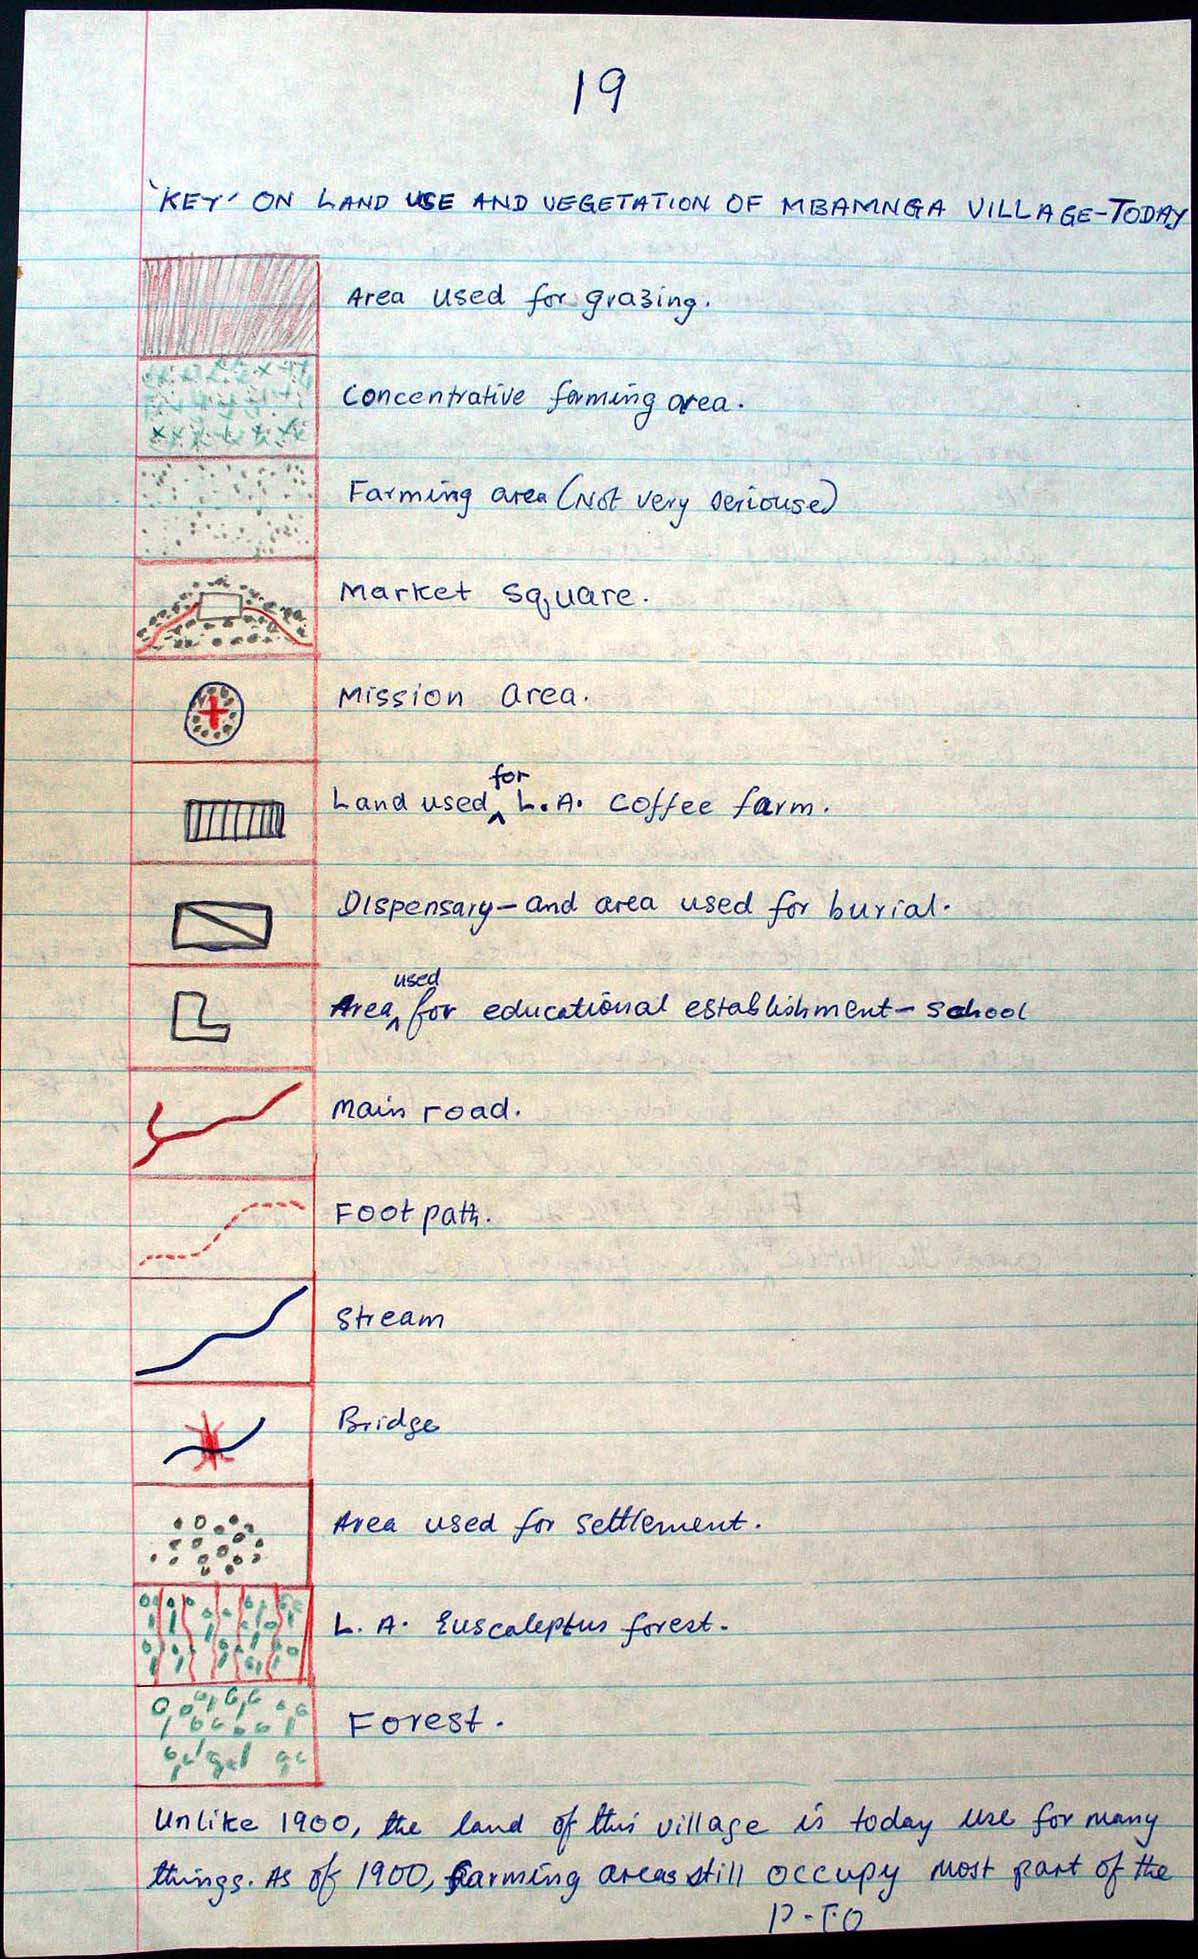 19
'KEY' ON LAND USE AND VEGETATION OF MBAMNGA VILLAGE-TODAY
Area used for grazing.
Concentrative farming area.
Farming area (Not very seriouse)
Market square.
Mission area.
Land used for L.A. coffee farm.
Dispensary- and area used for burial.
Area used for educational establishment- school
Main road.
Foot path.
Stream
Bridge
Area used for settlement.
L.A. Euscaleptus forest.
Forest.
Unlike 1900, the land of this village is today use for many
things. As of 1900, farming areas still occupy most part of the
P.T.O